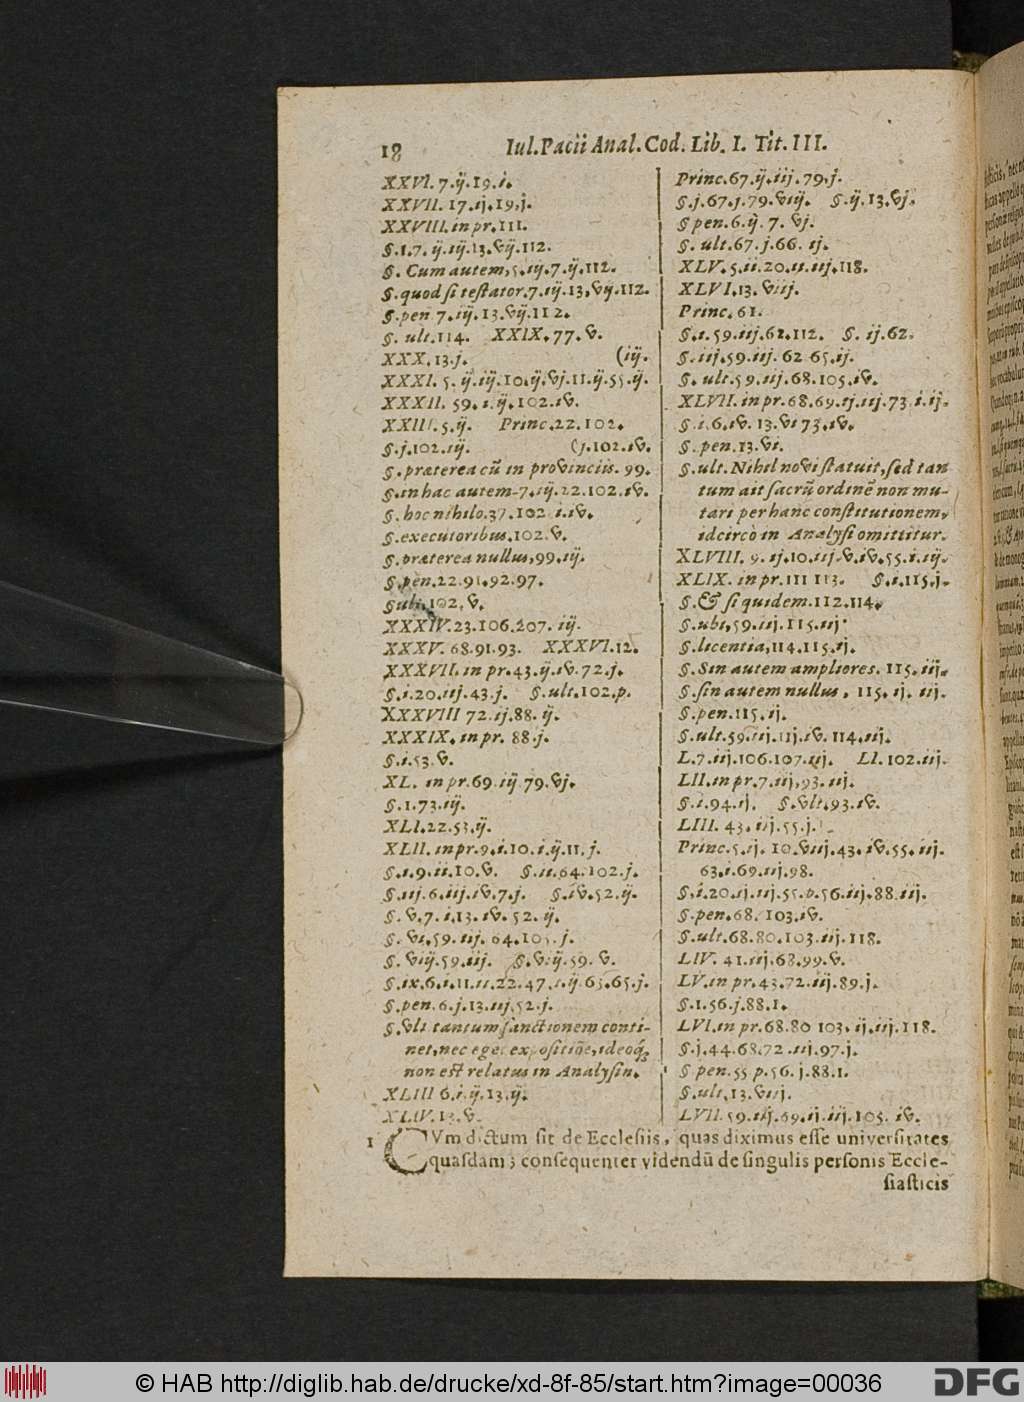 18 Iul. Pacii Anal. Cod. Lib. I. Tit. III.
XXVI. 7. ij. 19. i.
XXVII. 17. ij. 19. j.
XXVIII. in pr. 111.
§. 1. 7. ij. iij. 13. vij. 112.
§. Cum autem, 5. iij. 7. ij. 112.
§. quod si testator. 7. iij. 13, vij. 112.
§. pen 7. iij. 13. vij. 112.
§. ult. 114. XXIX. 77. v.
XXX. 13. j. (iij.
XXXI. 5. ij. iij. 10. ij. vj. 11. ij. 55. ij.
XXXII. 59. i. ij. 102. iv.
XXIII. 5. ij. Princ. 22. 102.
§. j. 102. iij. (j. 102. iv.
§. præterea cū in provinciis. 99.
§. in hac autem. 7. iij. 22. 102. iv.
§. hoc nihilo. 37. 102. i. iv.
§. executoribus. 102. v.
§. præterea nullus, 99. iij.
§. pen. 22. 91. 92. 97.
§ ult. 102. v.
XXXIV. 23. 106. 207. iij.
XXXV. 68. 91. 93. XXXVI. 12.
XXXVII. in pr. 43. ij. iv. 72. j.
§. i. 20. iij. 43. j. §. ult. 102. p.
XXXVIII 72. ij. 88. ij.
XXXIX. in pr. 88. j.
§. i. 53. v.
XL. in pr. 69. iij 79. vj.
§. 1. 73. iij.
XLI. 22. 53. ij.
XLII. in pr. 9. i. 10. i. ij. 11. j.
§. 1. 9. ii. 10. v. §. ii. 64. 102. j.
§. iij. 6. iij. iv. 7. j. §. iv. 52. ij.
§. v. 7. i. 13. iv. 52. ij.
§. vi. 59. iij. 64. 105. j.
§. vij. 59. iij. §. viij. 59. v.
§. ix. 6. i. 11. ii. 22. 47. i. ij. 63. 65. j.
§. pen. 6. j. 13. iij. 52. j.
§. vlt tantum sanctionem conti-
net, nec eget expositiōe, ideoq;
non est relatus in Analysin.
XLIII 6. i. ij. 13. ij.
XLIV. 13. v.
Princ. 67. ij. iij. 79. j.
§. j. 67. j. 79. viij. §. ij. 13. vj.
§ pen. 6. ij. 7. vj.
§. ult. 67. j. 66. ij.
XLV. 5. ii. 20. ii. iij. 118.
XLVI. 13. viij.
Princ. 61.
§. i. 59. iij. 62. 112. §. ij. 62.
§. iij. 59. iij. 62. 65. ij.
§. ult. 59. iij. 68. 105. iv.
XLVII. in pr. 68. 69. ij. iij. 73. i. ij.
§. i. 6. iv. 13. vi 73. iv.
§. pen. 13. vi.
§. ult. Nihil novi statuit, sed tan
tum ait sacrū ordinē non mu-
tari per hanc constitutionem,
idcircò in Analysi omittitur.
XLVIII. 9. ij. 10. iij. v. iv. 55. i. iij.
XLIX. in pr. 111 113. §. i. 115. j.
§. & si quidem. 112. 114.
§. ubi, 59. iij. 115. iij.
§. licentia, 114. 115. ij.
§. Sin autem ampliores. 115. iij.
§. sin autem nullus, 115. ij. iij.
§. pen. 115. ij.
§. ult. 59. iij. iij. iv. 114. iij.
L. 7. iij. 106. 107. iij. LI. 102. iij.
LII. in pr. 7. iij, 93. iij.
§. i. 94. ij. §. vlt. 93. iv.
LIII. 43. iij. 55. j.
Princ. 5. ij. 10. viij. 43. iv. 55. iij.
63. i. 69. iij. 98.
§. i. 20. ij. iij. 55. p. 56. iij. 88. iij.
§. pen. 68. 103. iv.
§. ult. 68. 80. 103. iij. 118.
LIV. 41. iij. 68. 99. v.
LV. in pr. 43. 72. iij. 89. j.
§. 1. 56. j. 88. 1.
LVI. in pr. 68. 80 103. ij. iij. 118.
§. j. 44. 68. 72. iij. 97. j.
§ pen. 55 p. 56. j. 88. 1.
§. ult. 13. viij.
LVII. 59. iij. 69. ij. iij. 105. iv.
1 CVm dictum sit de Ecclesiis, quas diximus esse universitates
quasdam; consequenter videndū de singulis personis Eccle-
siasticis
© HAB http://diglib.hab.de/drucke/xd-8f-85/start.htm?image=00036
DFG